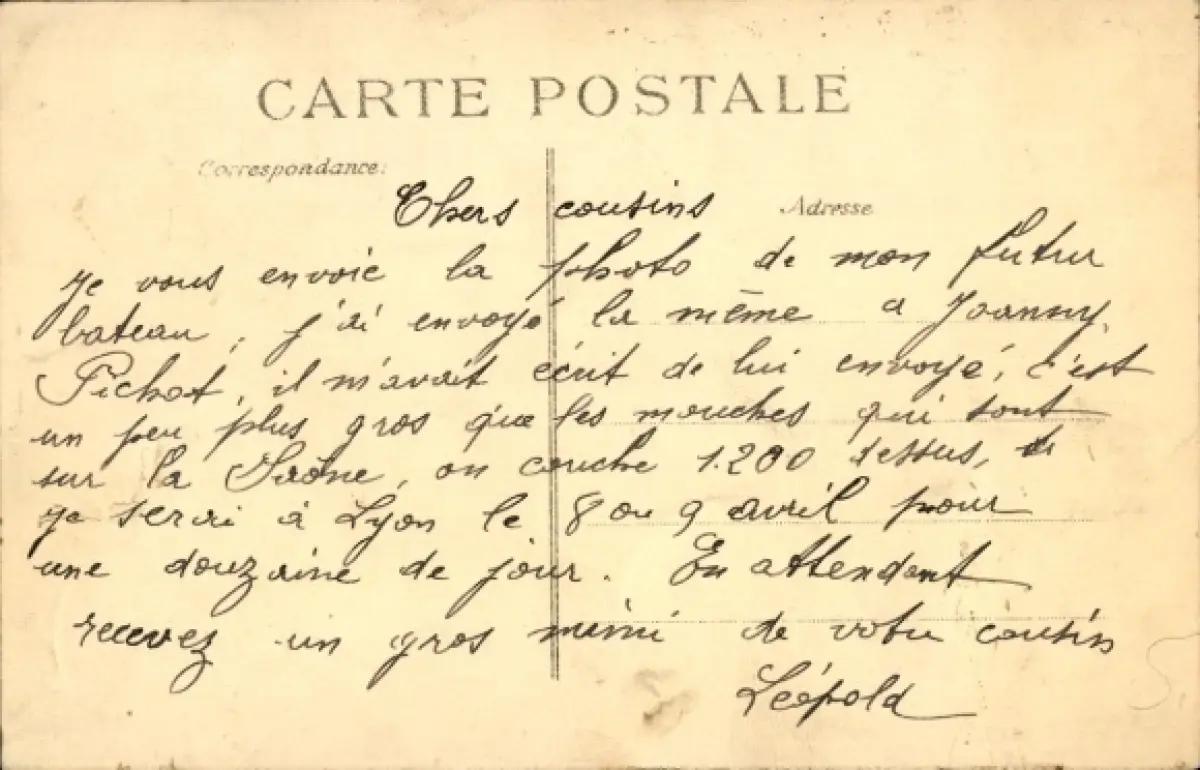 CARTE POSTALE
Correspondance:
Adresse
Chers cousins
Je vous envoie la photo de mon futur
bateau, j'ai envoyé la même a Joanny
Pichot, il m'avait écrit de lui envoyé, c'est
un peu plus gros que les mouches qui sont
sur la Saône, on couche 1.200 dessus,
je serai à Lyon le 8 ou 9 avril pour
une douzaine de jour. En attendant
recevez un gros mimi de votre cousin
Léopold